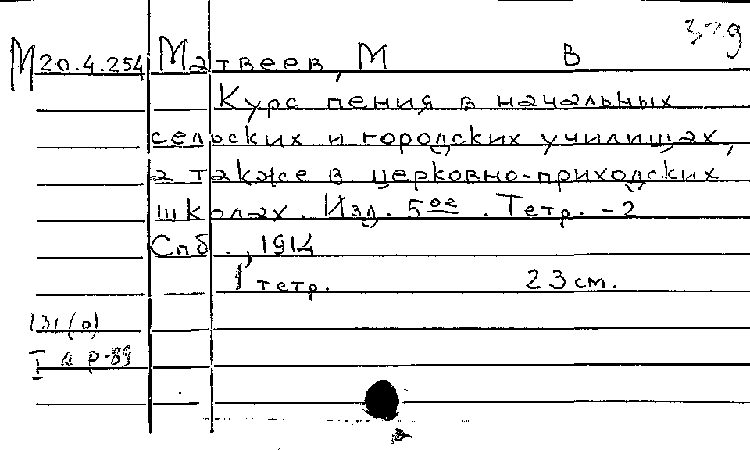 379
М20.4.254 Матвеев, М В
Курс пения в начальных
сельских и городских училищах,
а также в церковно-приходских
школах. Изд. 5ое. Тетр. - 2
Спб., 1914
1 тетр. 23 см.
131(о)